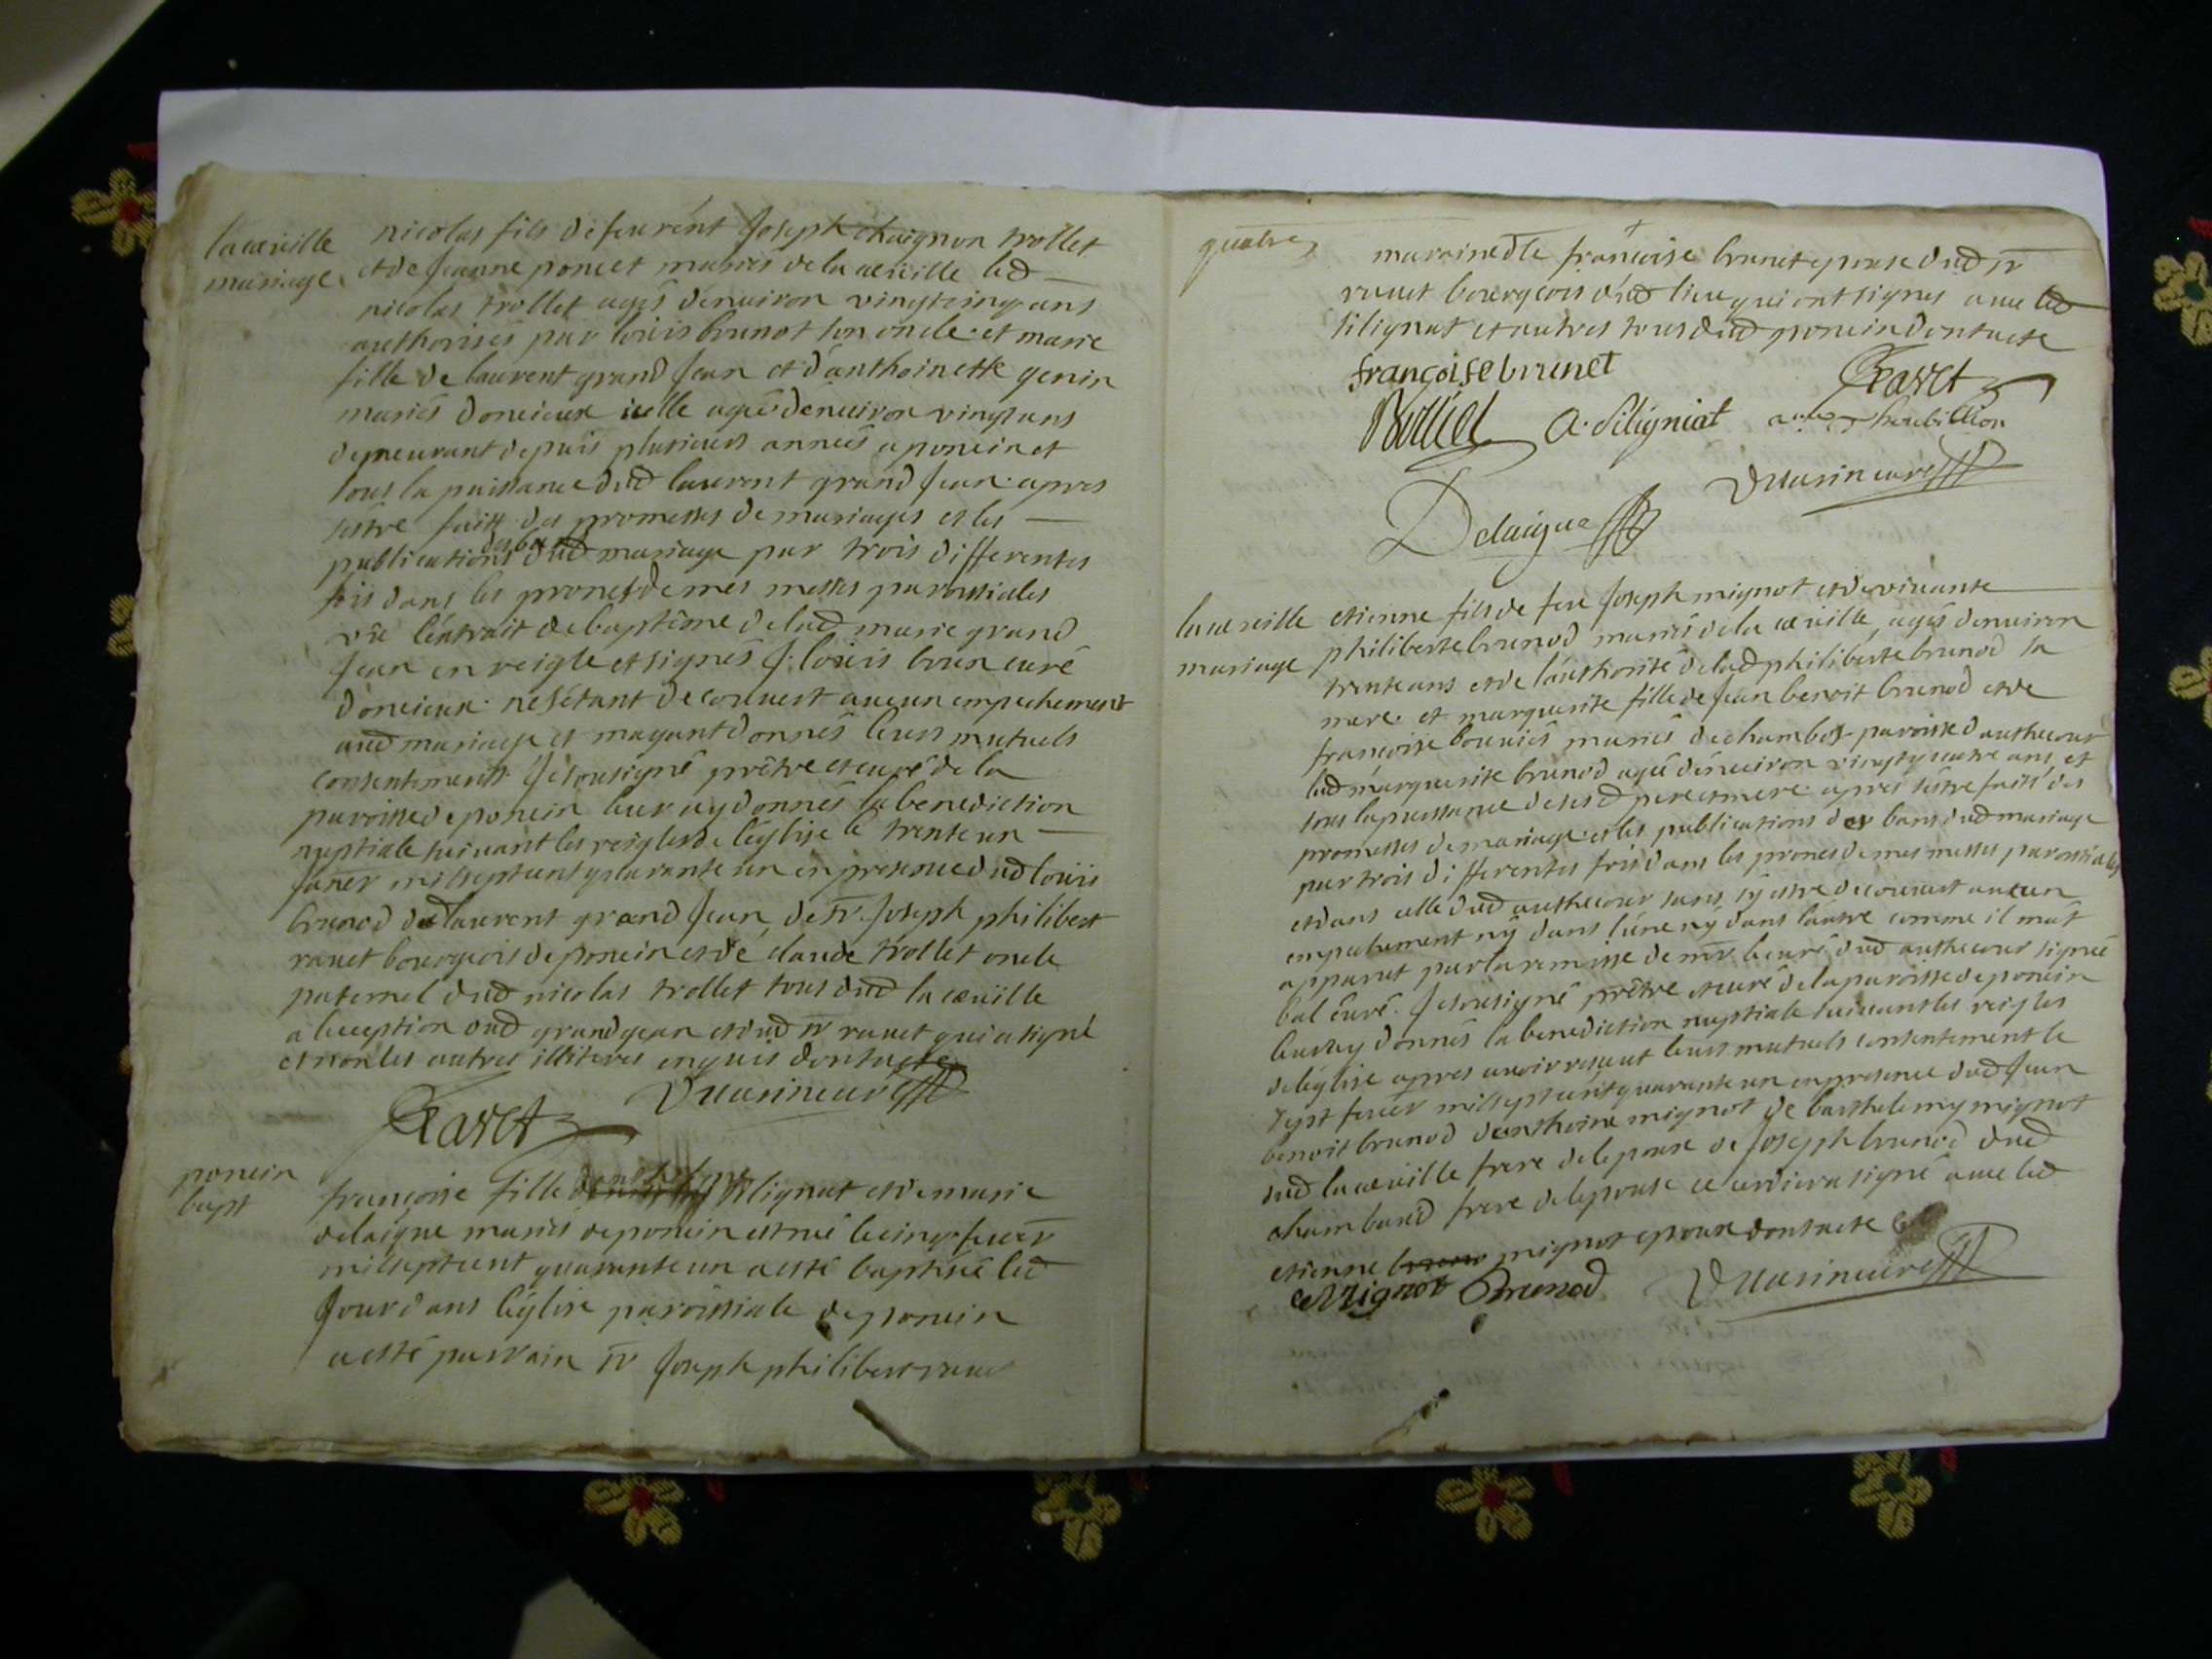 la cueille
mariage
nicolas fils de feu rént Joseph chaignon trollet
et de Jeanne poncet mariés de la cueille led
nicolas trollet agés dénuiron vingtcinq ans
authorisés par loüis brunot son oncle et marie
fille de laurent grand Jean et d'anthoinette genin
mariés doncieux icelle agée dénuiron vingt ans
demeurant depuis plusieurs années a poncin et
sous la puissance dud laurent grand Jean apres
sestre faitt des promesses de mariages et les
publications des bans dud mariage par trois differentes
fois dans les prones de mes messes paroissiales
vû léxtrait de baptême de lad marie grand
Jean en reigle et signés J: loüis brun curé
doncieux nesétant decouuert aucun empechement
aud mariage et mayant donnés leurs mutuels
consentements Je sousigné prêtre et curé de la
paroisse de poncin leur ay donnés la benediction
nuptiale suiuant les reigles de léglise le trente un
Janer mil sept cent quarante un en presence dud loüis
brunod de laurent grand Jean, de sr Joseph philibert
rauet bourgeois de poncin et de claude trollet oncle
paternel dud nicolas trollet tous dud la cueille
a lexeption dud grandjean et dud sr rauet qui a signé
et non les autres illiteres enquis dont acte
Ravet Duuarin curé
poncin
bapt
françoise fille silignat et de marie
delaigue mariés de poncin est née le cinq feuer
mil sept cent quarante un a esté baptisée led
Jour dans léglise paroissiale de poncin
a esté parrain sr Joseph philibert rauet
quatre
marraine dlle françoise brunet epouse dud sr
rauet bourgeois dud lieu qui ont signes auec led
silignat et autres tous dud poncin dont acte
françoise brunet Ravet
A. Siligniat
Duuarin curé
Delaigue
la cueille
mariage
etienne fils de feu Joseph mignot et de viuante
philiberte brunod mariés de la cueille, agés dénuiron
trente ans et de láuthorité de lad philiberte brunod sa
mere et marguerite fille de Jean benoit brunod et de
françoise bouuier mariés de chambod paroisse d'authecour
lad marguerite brunod agée dénuiron vingtquatre ans, et
sous la puissance de sesd pere et mere apres sestre faits des
promesses de mariage et les publications des bans dud mariage
par trois differentes fois dans les prones de mes messes paroissiales
et dans celle dud authecour sans sy estre decouuert aucun
empechement ny dans lúne ny dans láutre comme il mát
apparut par la remisse de mr le curé dud authecour signée
bal curé. Je sousigné prêtre et curé de la paroisse de poncin
leur ay donnés la benediction nuptiale suiuant les reigles
de léglise apres auoir receut leurs mutuels consentement le
sept feuer mil sept cent quarante un en presence dud Jean
benoit brunod danthoine mignot de barthelemy mignot
dud la cueille frere de lepoux de Joseph brunod dud
chambaud frere de lepouse ce dernier a signé auec led
etienne mignot epoux dont acte
eMignot Brunod Duuarin curé